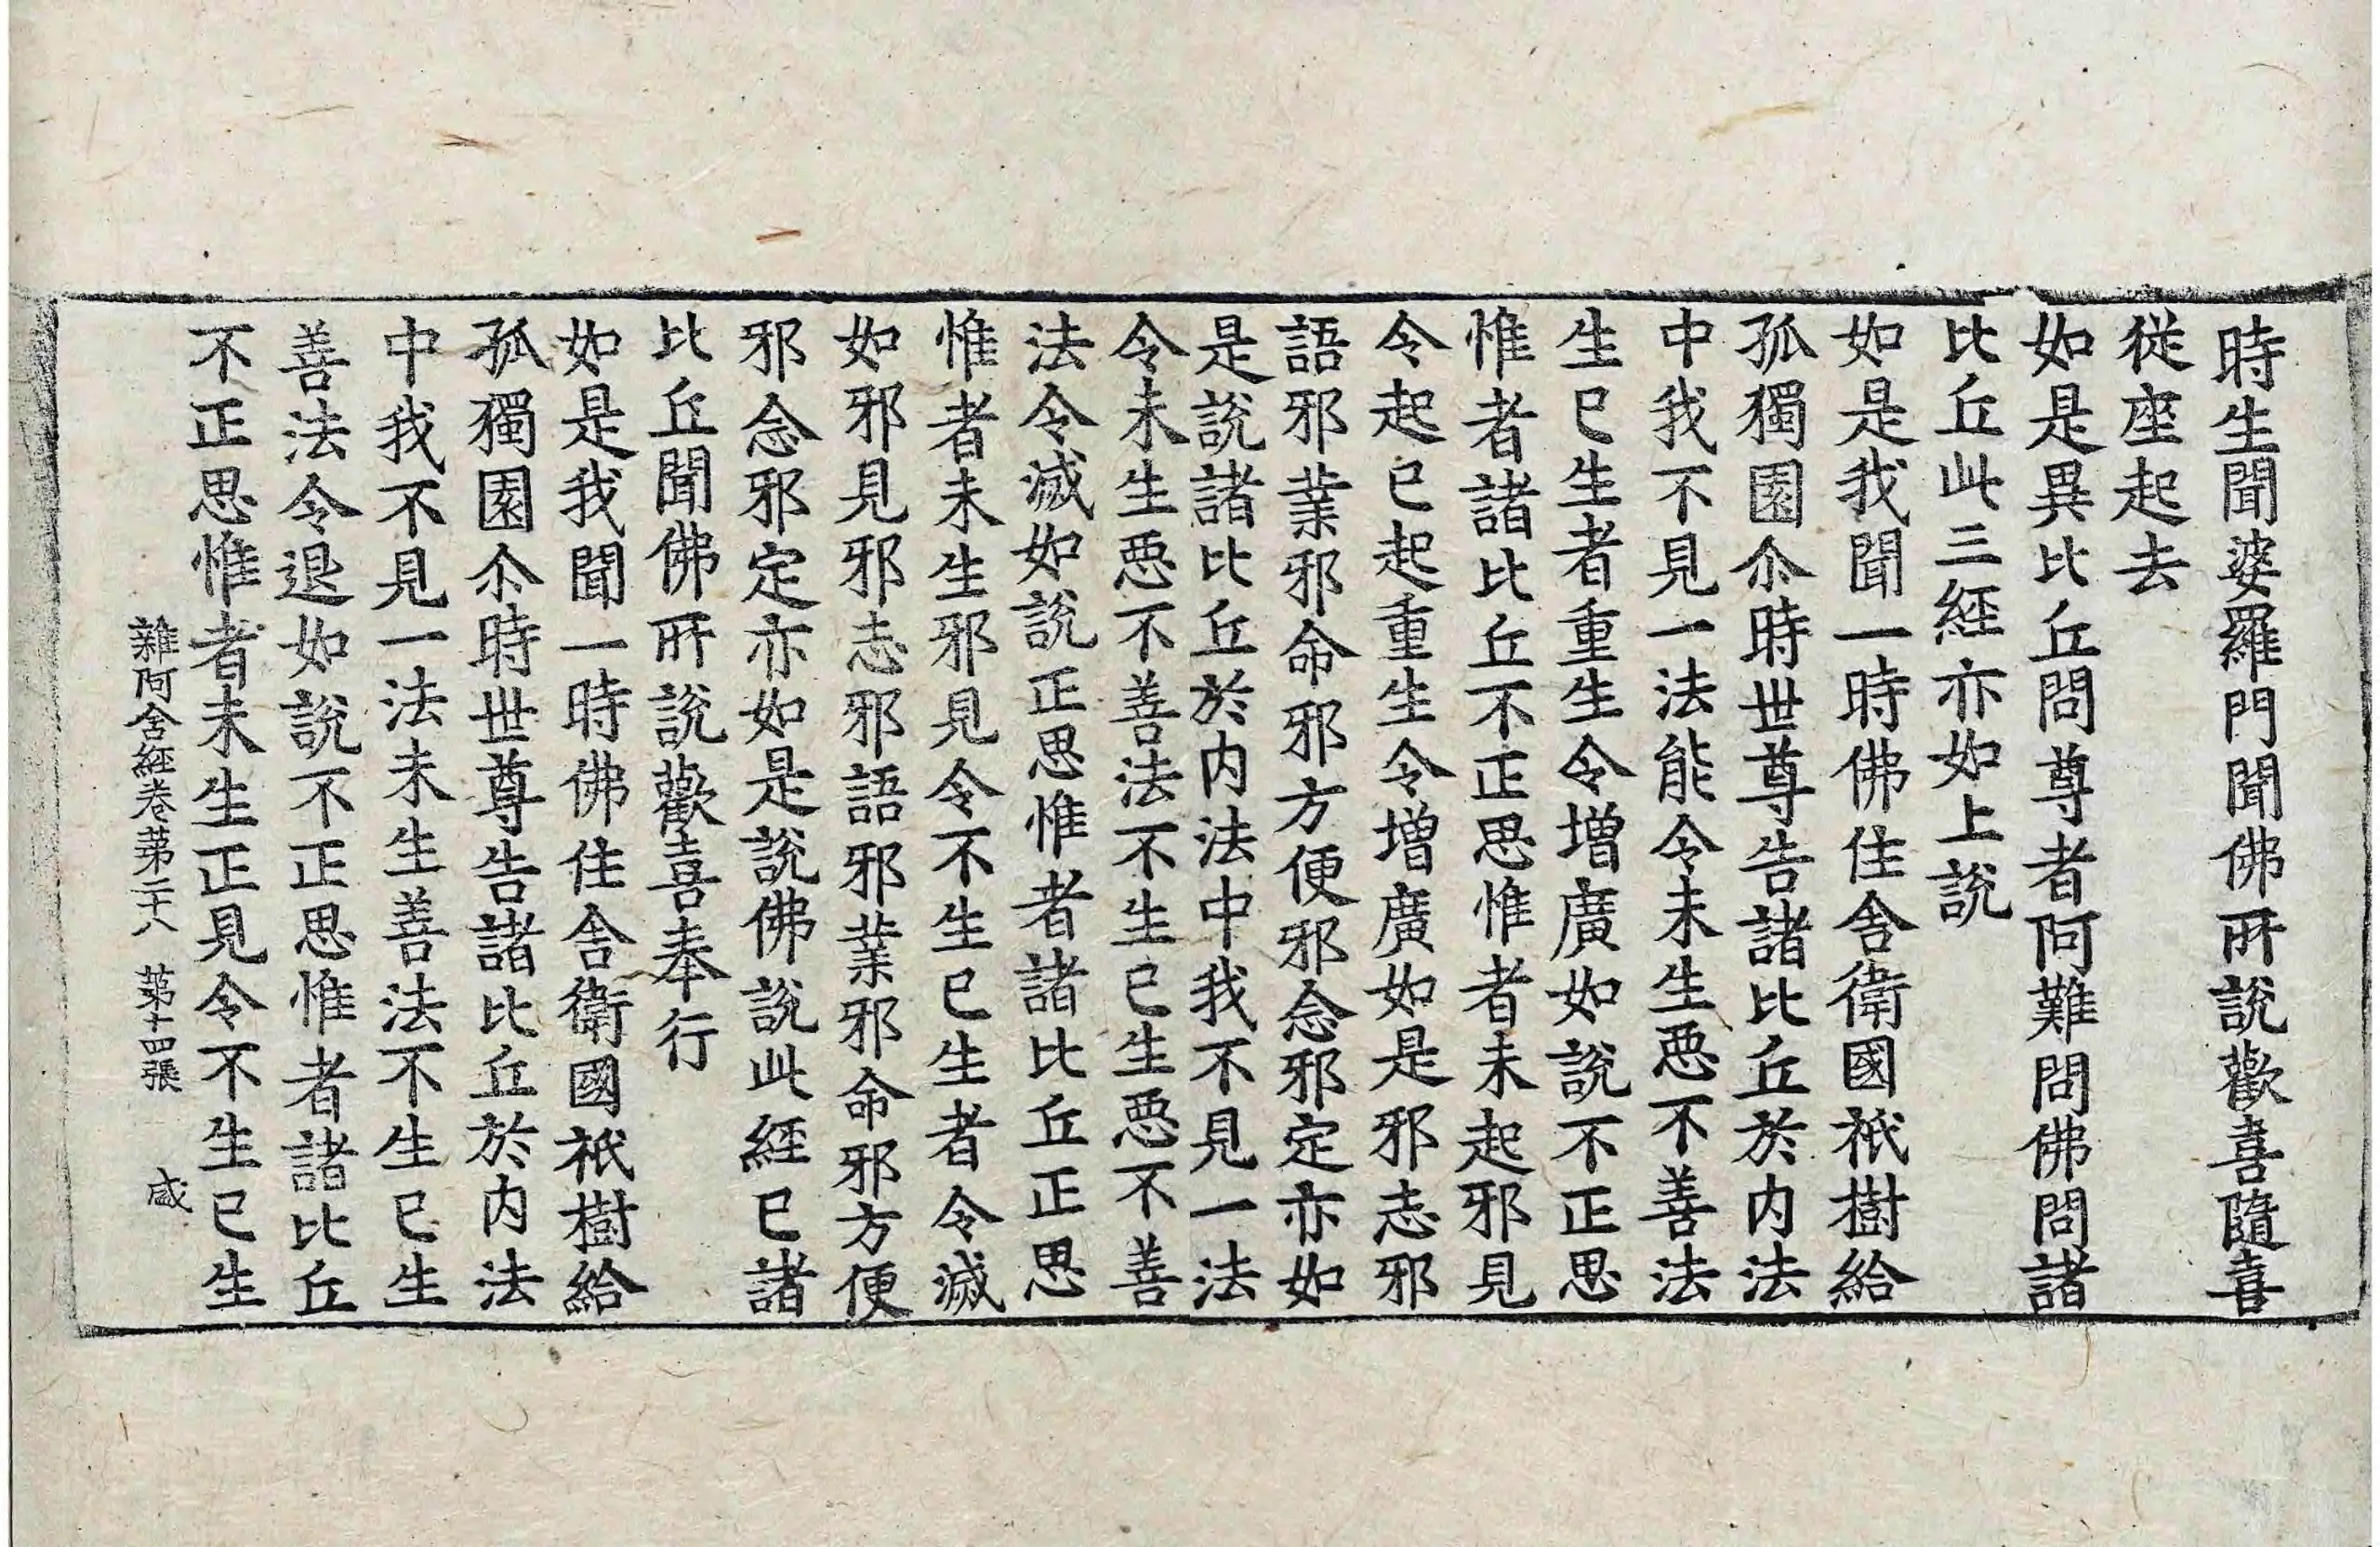 時生聞婆羅門聞佛所說歡喜隨喜
從座起去
如是異比丘問尊者阿難問佛問諸
比丘此三經亦如上說
如是我聞一時佛住舍衛國祇樹給
孤獨園尒時世尊告諸比丘於内法
中我不見一法能令未生惡不善法
生已生者重生令增廣如說不正思
惟者諸比丘不正思惟者未起邪見
令起已起重生令增廣如是邪志邪
語邪業邪命邪方便邪念邪定亦如
是說諸比丘於内法中我不見一法
令未生惡不善法不生已生惡不善
法令滅如說正思惟者諸比丘正思
惟者未生邪見令不生已生者令滅
如邪見邪志邪語邪業邪命邪方便
邪念邪定亦如是說佛說此經已諸
比丘聞佛所說歡喜奉行
如是我聞一時佛住舍衛國祇樹給
孤獨園尒時世尊告諸比丘於内法
中我不見一法未生善法不生已生
善法令退如說不正思惟者諸比丘
不正思惟者未生正見令不生已生
雜阿含經卷第二十八 第十四張 盛